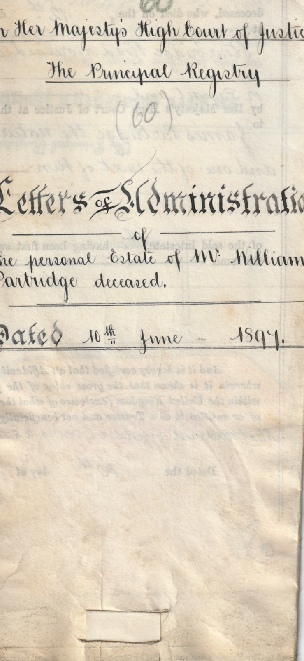 60
n Her Majesty's High Court of Justic
The Principal Registry
60
Letters of Administratio
of
he personal Estate of Mr. William
Partridge deceased.
Dated 10th June - 1897.